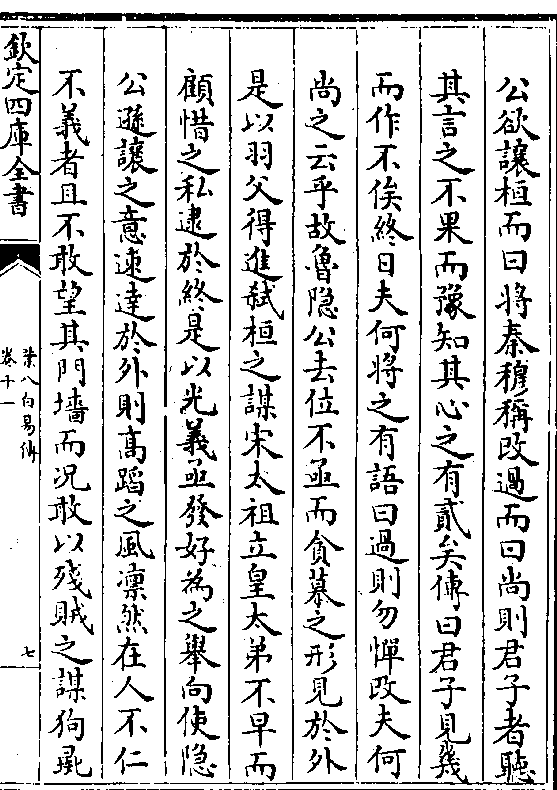 公欲讓桓而曰將秦穆稱改過而曰尚則君子者聽
其言之不果而豫知其心之有貳矣傳曰君子見幾
而作不俟終日夫何將之有語曰過則勿憚改夫何
尚之云乎故魯隐公去位不亟而貪慕之形見於外
是以羽父得進弑桓之謀宋太祖立皇太弟不早而
顧惜之私逮於終是以光義亟發好為之舉向使隐
公遜讓之意速達於外則高蹈之風凛然在人不仁
不義者且不敢望其門墻而况敢以殘賊之謀狗彘
欽定四庫全書
柒八白易傳
卷十一
七